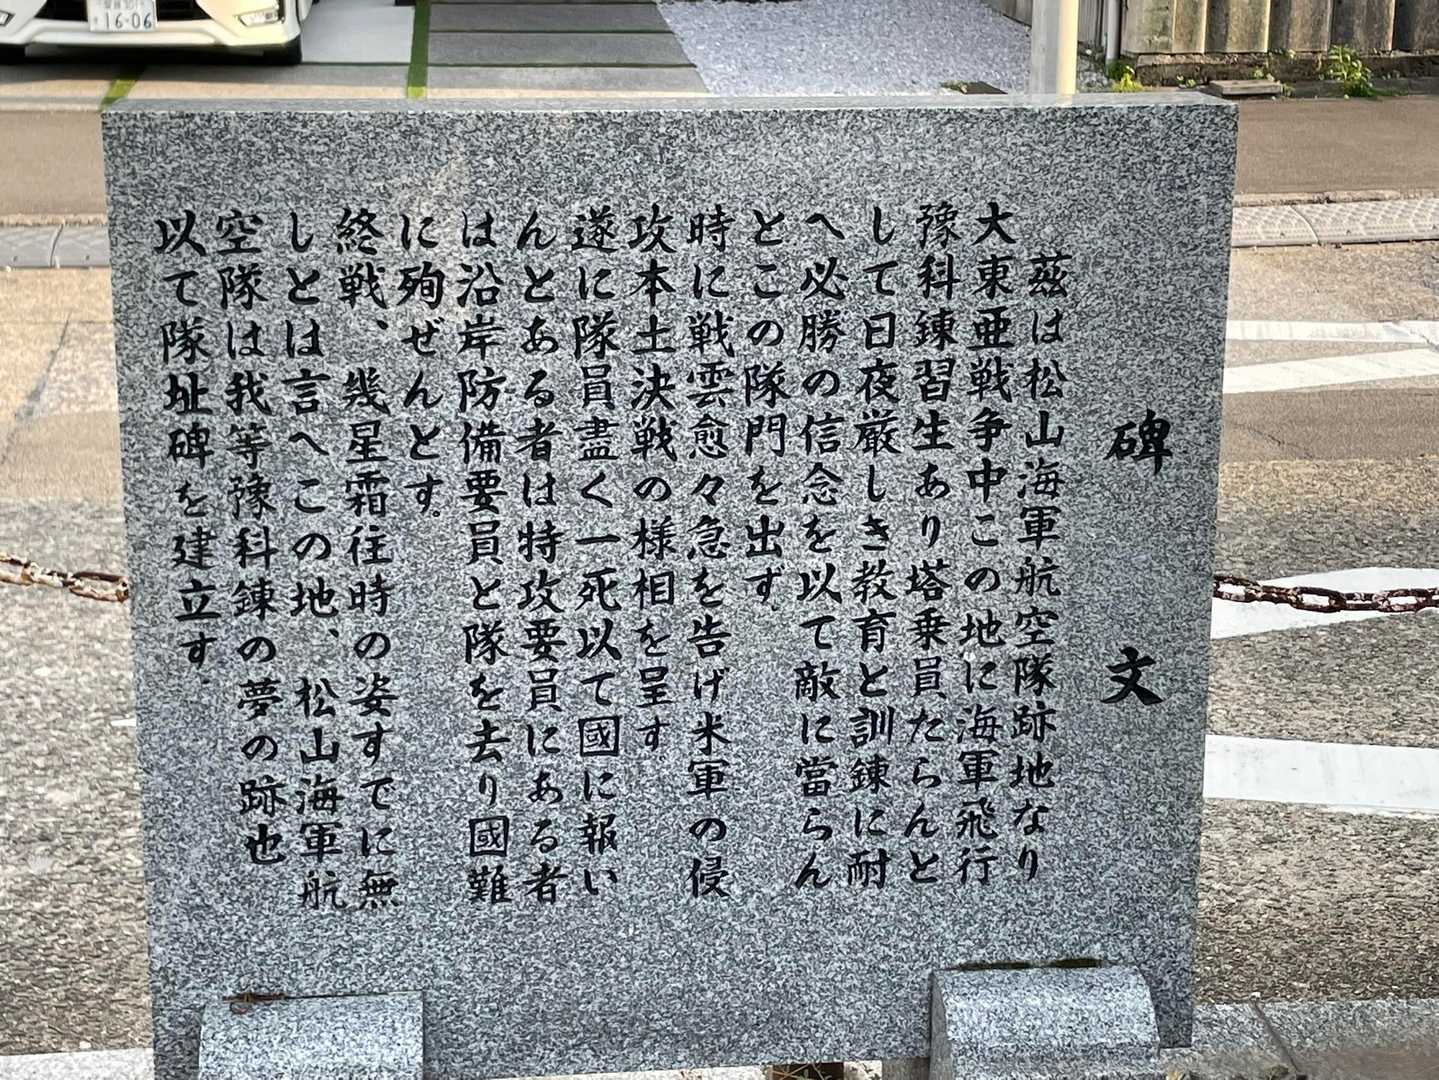 碑文
茲は松山海軍航空隊跡地なり
大東亜戦争中この地に海軍飛行
豫科錬習生あり塔乗員たらんと
して日夜厳しき教育と訓錬に耐
へ必勝の信念を以て敵に當らん
とこの隊門を出ず。
時に戦雲愈々急を告げ米軍の侵
攻本土決戦の様相を呈す。
遂に隊員盡く一死以て國に報い
んとある者は特攻要員にある者
は沿岸防備要員と隊を去り國難
に殉ぜんとす。
終戦、幾星霜往時の姿すでに無
しとは言へこの地、松山海軍航
空隊は我等豫科錬の夢の跡也
以て隊址碑を建立す。
16-06